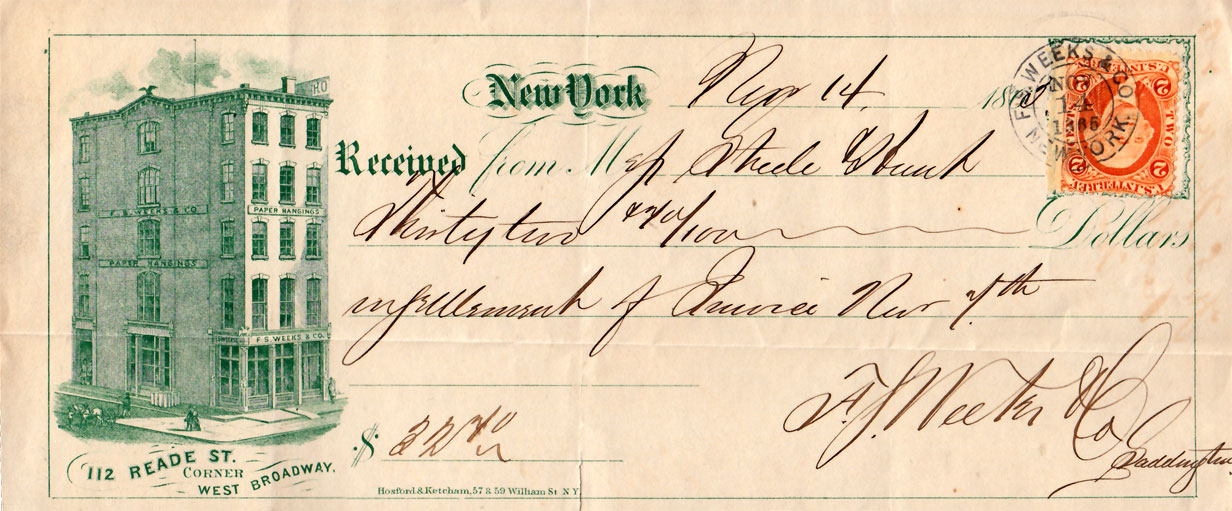 New York Nov 14 186
Received from M
Thirty two 40/100 Dollars
in settlement of Invoice Nov 7th
F. S. Weeks & Co
$ 32 40
Hosford & Ketcham, 57 & 59 William St N Y
F. S. WEEKS & CO.
PAPER HANGINGS
PAPER HANGINGS
F. S. WEEKS & CO.
112 READE ST.
CORNER
WEST BROADWAY.
F. S. WEEKS & CO
NOV
14
1865
NEW YORK.
U.S. INTER. REV.
2 TWO 2